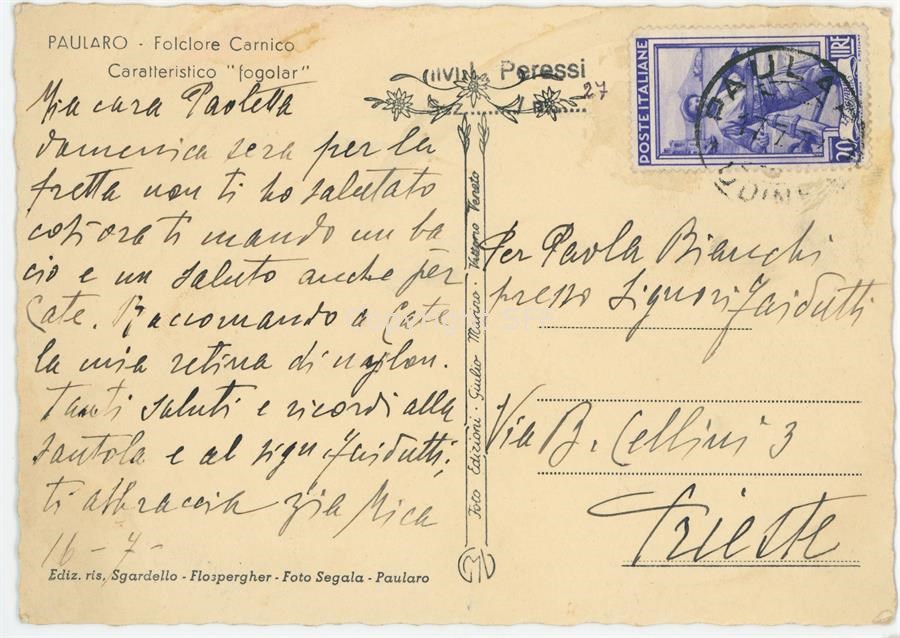 PAULARO - Folclore Carnico
Caratteristico "fogolar"
Mia cara Paoletta
domenica sera per la
fretta non ti ho salutato
così ora ti mando un ba
cio e un saluto anche per
Cate. Raccomando a Cate
la mia retina di nylon.
Tanti saluti e ricordi alla
santola e al sign. Jaidutti,
ti abbraccia zia Mica
16-7-
Ediz. ris. Sgardello - Flospergher - Foto Segala - Paularo
Peressi
27
Foto Edizioni · Giulio Marino · Vittorio Veneto
POSTE ITALIANE
LIRE
20
PAULA
UDINE
Per Paola Bianchi
presso Signori Jaidutti
Via B. Cellini 3
Trieste